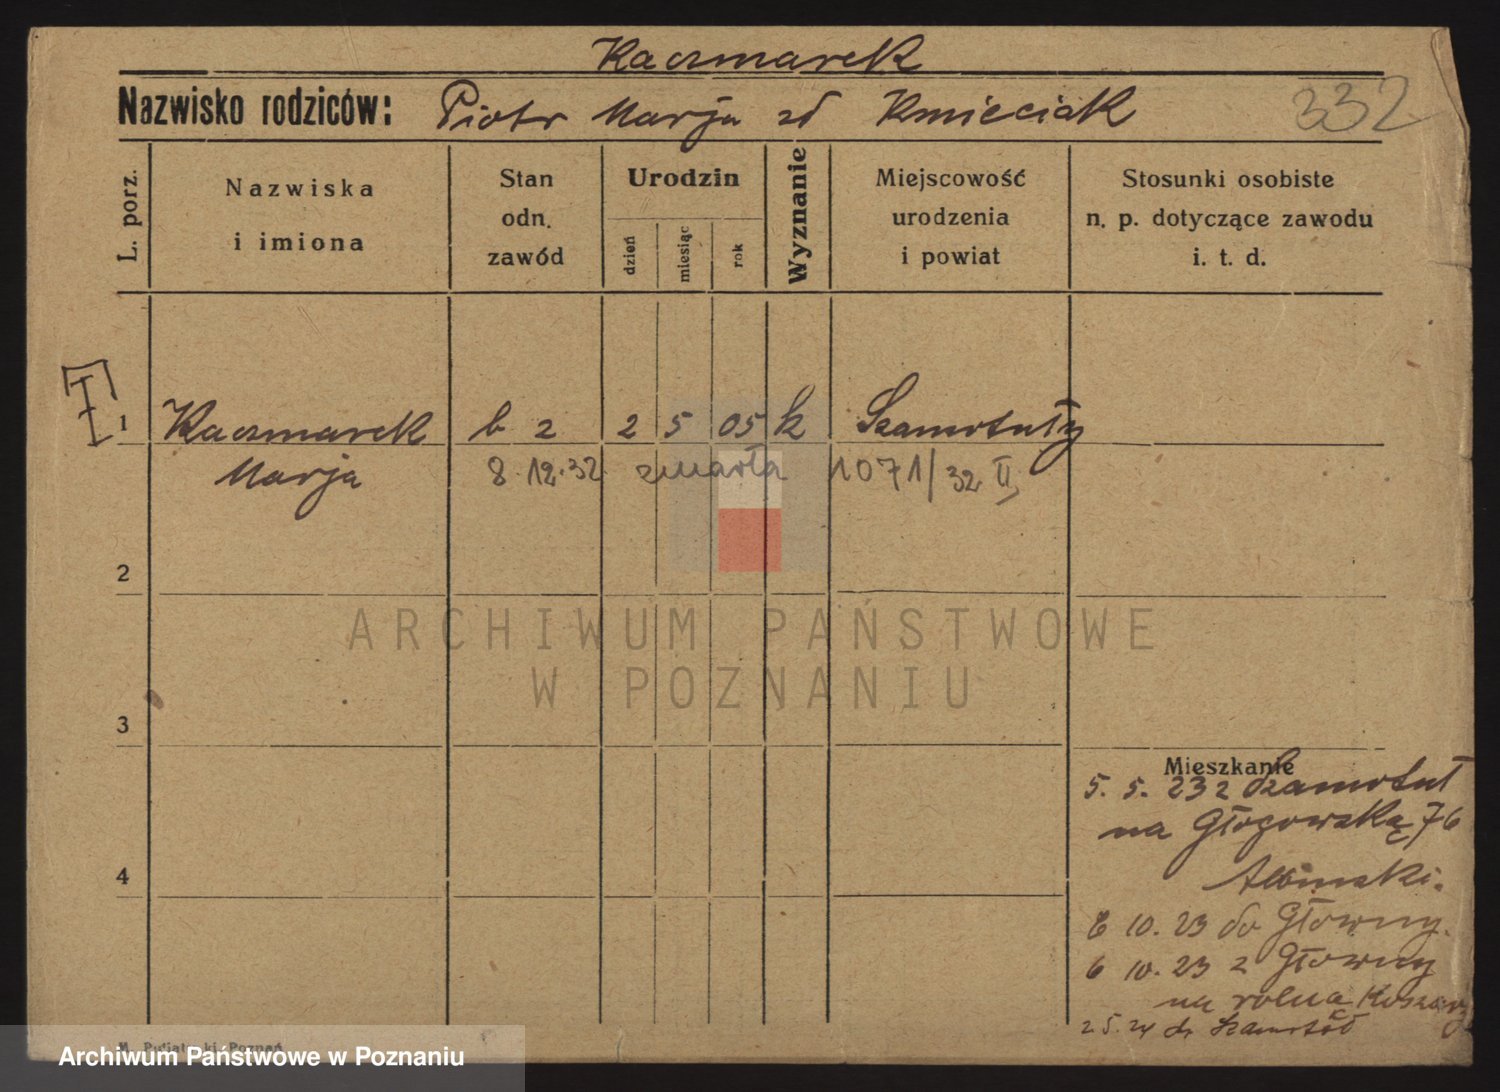 Kaczmarek
Nazwisko rodziców: Piotr Marja zd Kmieciak
332
L. porz.
Nazwiska i imiona
Stan odn. zawód
Urodzin
dzień
miesiąc
rok
Wyznanie
Miejscowość urodzenia i powiat
Stosunki osobiste n. p. dotyczące zawodu i. t. d.
1 Kaczmarek b 2 2 5 05 k Szamotuły
Marja 8.12.32. zmarła 1071/32 II
2
ARCHIWUM PAŃSTWOWE
W POZNANIU
3
Mieszkanie
5. 5. 23 z Szamotuł
na Głogowską 76
10. 23 do Główny.
6 10. 23 z Główny
na rolna Koszary
2.5.24 do Szamotół
4
Archiwum Państwowe w Poznaniu